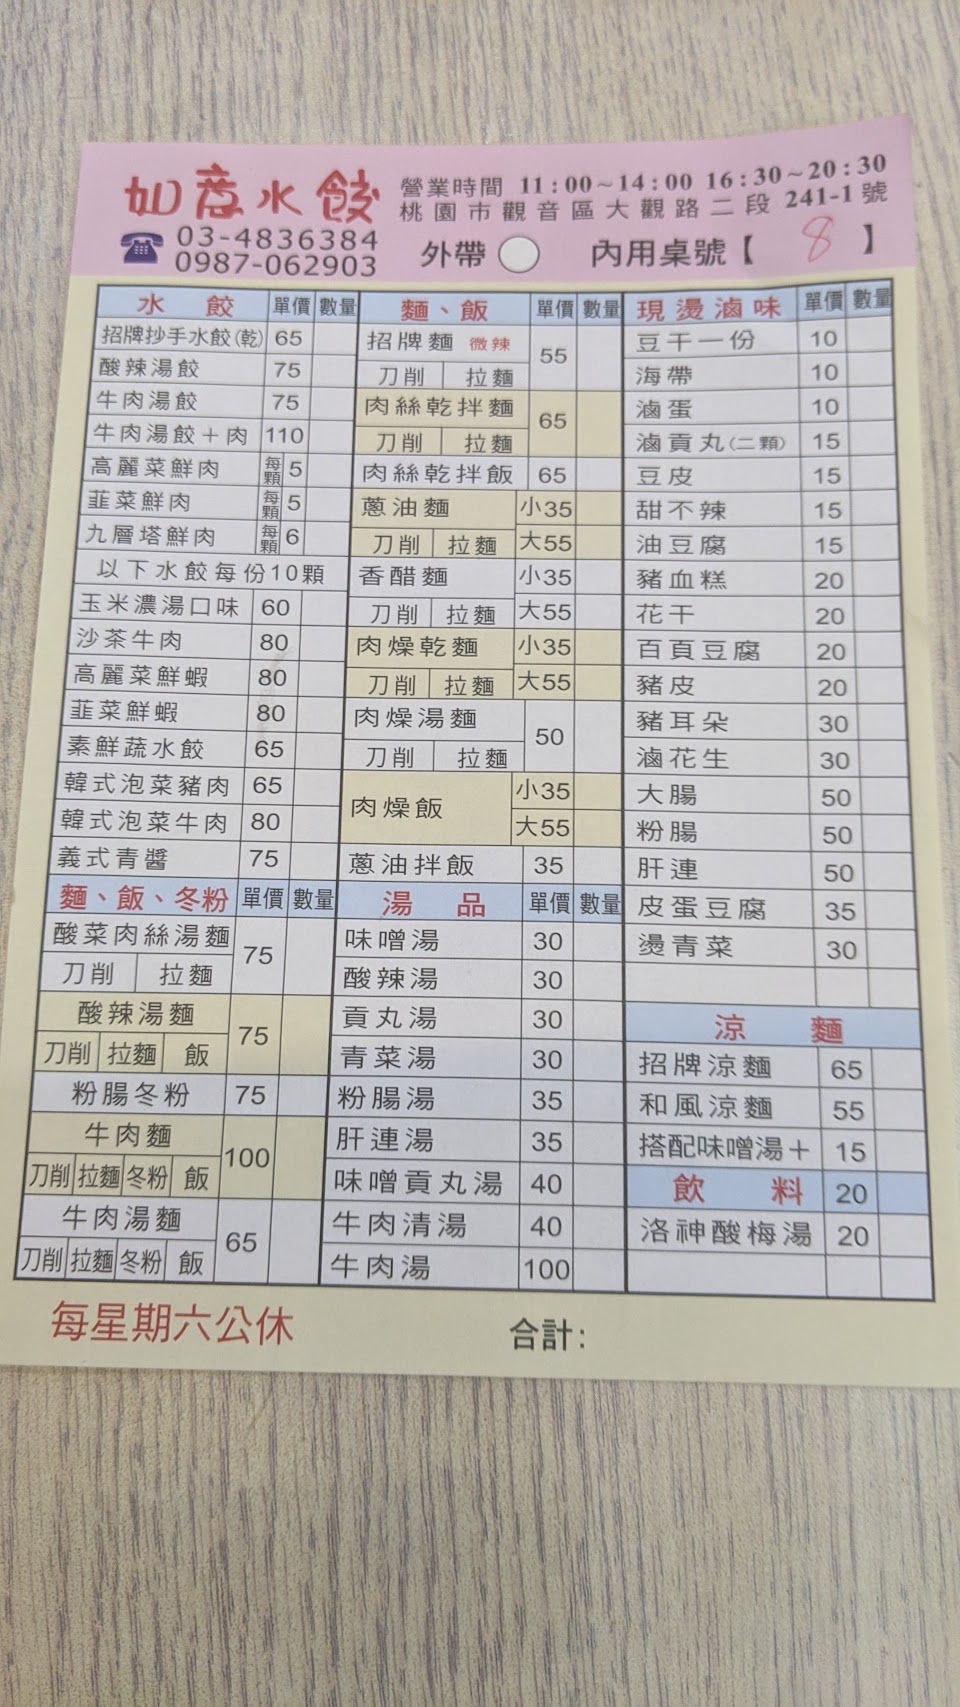 如意水餃
營業時間 11:00~14:00 16:30~20:30
桃園市觀音區大觀路二段 241-1 號
03-4836384
0987-062903
外帶
內用桌號【 8 】
水 餃 單價 數量
招牌抄手水餃(乾) 65
酸辣湯餃 75
牛肉湯餃 75
牛肉湯餃+肉 110
高麗菜鮮肉 每顆 5
韮菜鮮肉 每顆 5
九層塔鮮肉 每顆 6
以下水餃每份10顆
玉米濃湯口味 60
沙茶牛肉 80
高麗菜鮮蝦 80
韮菜鮮蝦 80
素鮮蔬水餃 65
韓式泡菜豬肉 65
韓式泡菜牛肉 80
義式青醬 75
麵、飯、冬粉 單價 數量
酸菜肉絲湯麵 75
刀削 拉麵
酸辣湯麵 75
刀削 拉麵 飯
粉腸冬粉 75
牛肉麵 100
刀削 拉麵 冬粉 飯
牛肉湯麵 65
刀削 拉麵 冬粉 飯
麵、飯 單價 數量
招牌麵 微辣 55
刀削 拉麵
肉絲乾拌麵 65
刀削 拉麵
肉絲乾拌飯 65
蔥油麵 小35
刀削 拉麵 大55
香醋麵 小35
刀削 拉麵 大55
肉燥乾麵 小35
刀削 拉麵 大55
肉燥湯麵 50
刀削 拉麵
肉燥飯 小35
大55
蔥油拌飯 35
湯 品 單價 數量
味噌湯 30
酸辣湯 30
貢丸湯 30
青菜湯 30
粉腸湯 35
肝連湯 35
味噌貢丸湯 40
牛肉清湯 40
牛肉湯 100
現燙滷味 單價 數量
豆干一份 10
海帶 10
滷蛋 10
滷貢丸(二顆) 15
豆皮 15
甜不辣 15
油豆腐 15
豬血糕 20
花干 20
百頁豆腐 20
豬皮 20
豬耳朵 30
滷花生 30
大腸 50
粉腸 50
肝連 50
皮蛋豆腐 35
燙青菜 30
涼 麵
招牌涼麵 65
和風涼麵 55
搭配味噌湯+ 15
飲 料 20
洛神酸梅湯 20
每星期六公休
合計: